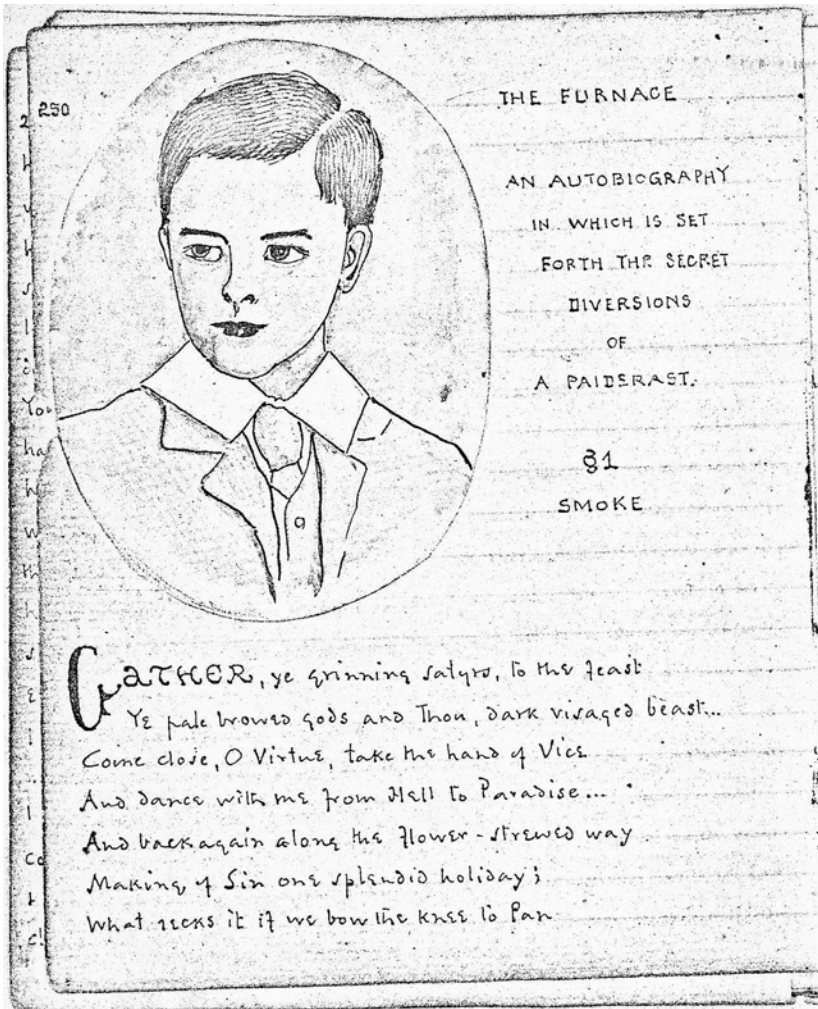 250
THE FURNACE
AN AUTOBIOGRAPHY
IN WHICH IS SET
FORTH THE SECRET
DIVERSIONS
OF
A PAIDERAST.
§1
SMOKE
GATHER, ye grinning satyrs, to the feast
Ye pale browed gods and Thou, dark visaged beast...
Come close, O Virtue, take the hand of Vice
And dance with me from Hell to Paradise...
And back again along the flower-strewed way
Making of Sin one splendid holiday;
What recks it if we bow the knee to Pan